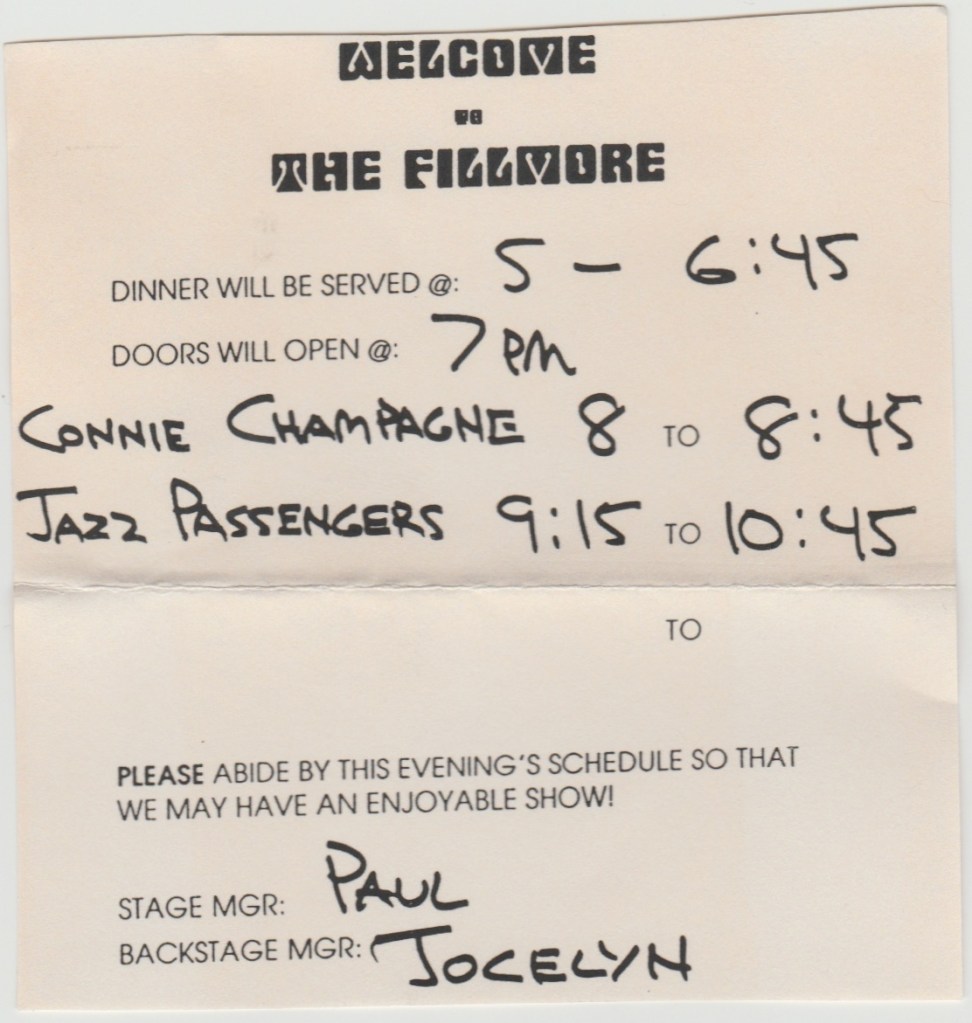 WELCOME
TO
THE FILLMORE
DINNER WILL BE SERVED @: 5 – 6:45
DOORS WILL OPEN @: 7 PM
CONNIE CHAMPAGNE 8 TO 8:45
JAZZ PASSENGERS 9:15 TO 10:45
TO
PLEASE ABIDE BY THIS EVENING'S SCHEDULE SO THAT
WE MAY HAVE AN ENJOYABLE SHOW!
STAGE MGR: PAUL
BACKSTAGE MGR: JOCELYN